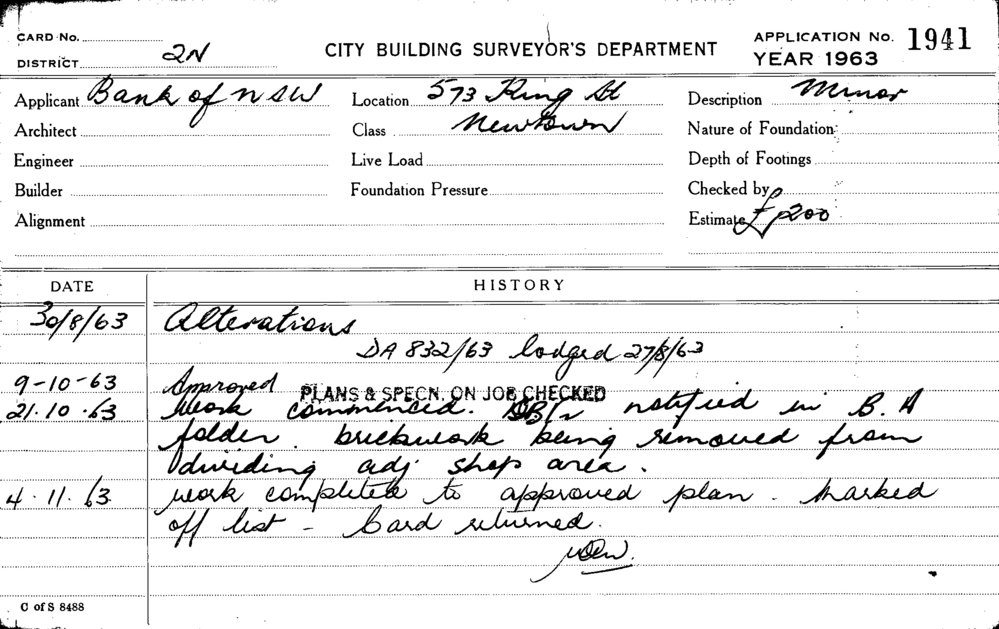 CARD No.
DISTRICT 2N
CITY BUILDING SURVEYOR'S DEPARTMENT
APPLICATION No. 1941
YEAR 1963
Applicant Bank of NSW Location 573 King St Description Minor
Architect Class Newtown Nature of Foundation
Engineer Live Load Depth of Footings
Builder Foundation Pressure Checked by
Alignment Estimate £1200
DATE HISTORY
30/8/63 Alterations
DA 832/63 lodged 27/8/63
9-10-63 Approved PLANS & SPECN. ON JOB CHECKED
21.10.63 Work commenced. notified in B. A
folder. brickwork being removed from
dividing adj. shop area.
4.11.63 work completed to approved plan. Marked
off list - Card returned.
C of S 8488